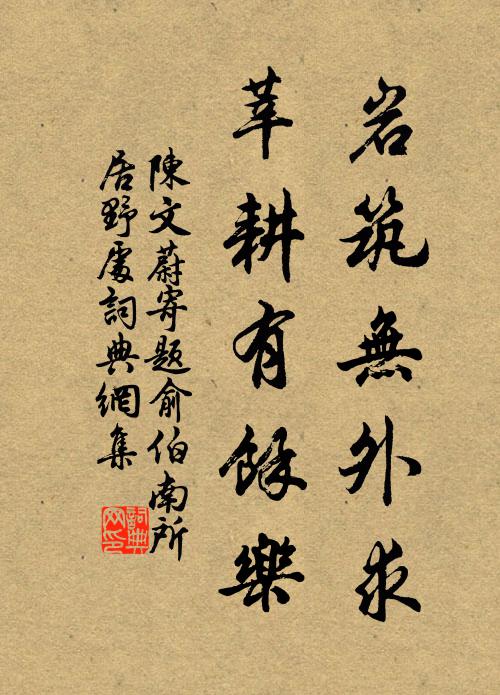 岩筑無外求
莘耕有餘樂
陳文蔚寄題俞伯南所
居野處詞典網集
詞典
网印